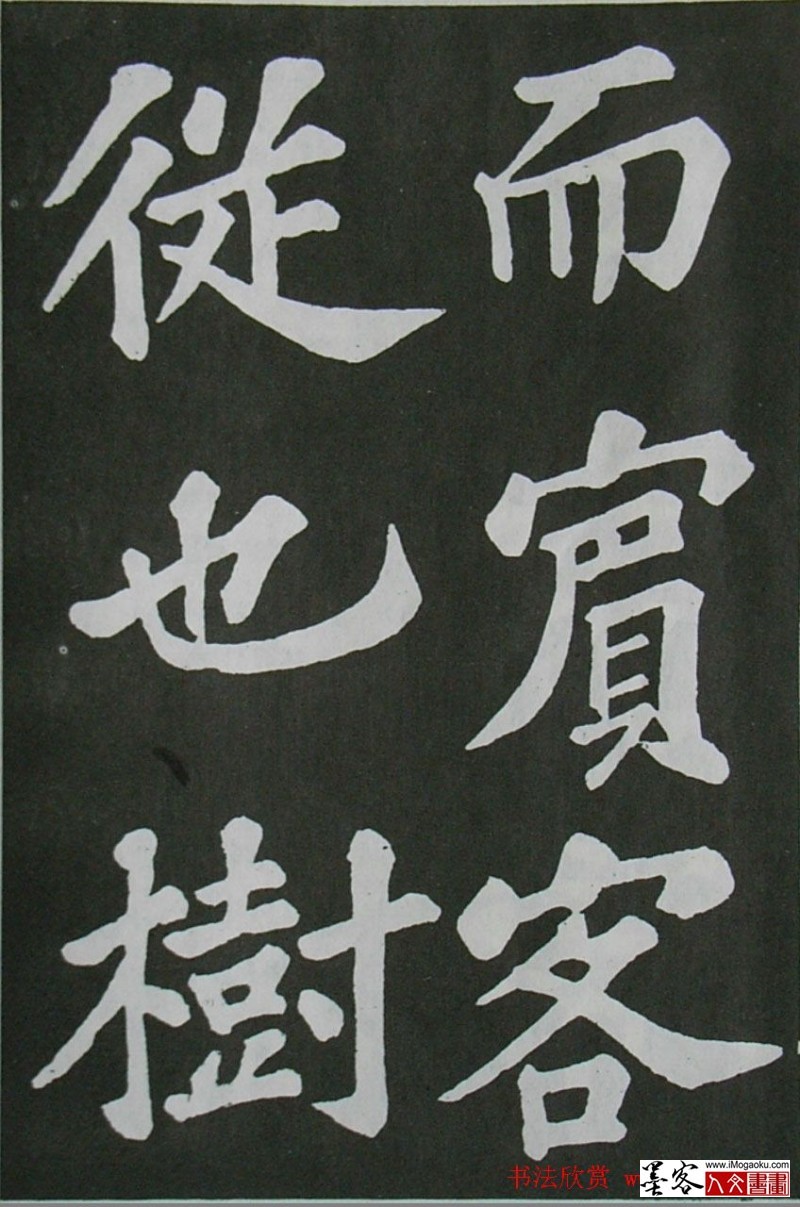 而賓客
從也樹
书法欣赏 w
www.iMogaoku.com
墨客
人文書畫